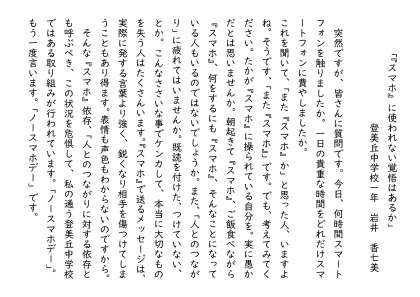 「『スマホ』に使われない覚悟はあるか」
登美丘中学校一年　岩井　香七美
　突然ですが、皆さんに質問です。今日、何時間スマート
フォンを触りましたか。一日の貴重な時間をどれだけスマ
ートフォンに費やしましたか。
これを聞いて、「また『スマホ』か」と思った人、いますよ
ね。そうです、「また『スマホ』」です。でも、考えてみてく
ださい。たかが『スマホ』に操られている自分を。実に愚か
だとは思いませんか。朝起きて『スマホ』、ご飯食べながら
『スマホ』、何をするにも『スマホ』、そんなことになって
いる人もいるのではないでしょうか。また、「人とのつなが
り」に疲れてはいませんか。既読を付けた、つけていない、
とか。こんなささいな事でケンカして、本当に大切なもの
を失う人はたくさんいます。『スマホ』で送るメッセージは、
実際に発する言葉より強く、鋭くなり相手を傷つけてしま
うこともあり得ます。表情も声色もわからないのですから。
　そんな『スマホ』依存、「人とのつながりに対する依存と
も呼ぶべき、この状況を危惧して、私の通う登美丘中学校
ではある取り組みが行われています。「ノースマホデー」。
もう一度言います。「ノースマホデー」です。